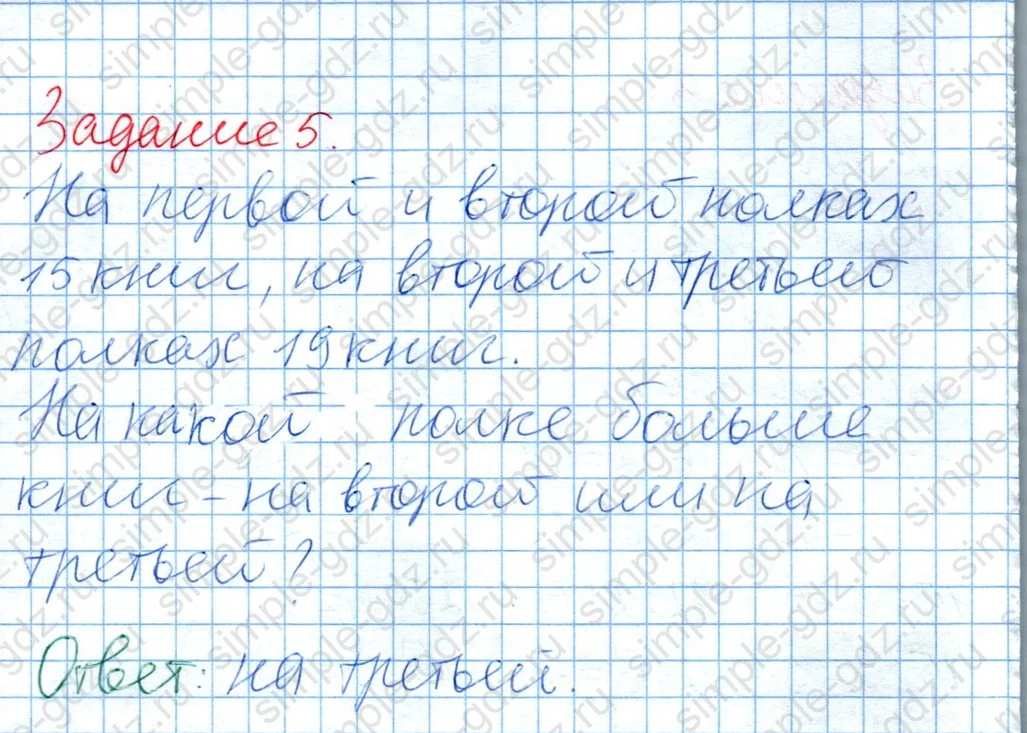 Задание 5.
На первой и второй полках
15 книг, на второй и третьей
полках 19 книг.
На какой полке больше
книг - на второй или на
третьей?
Ответ: на третьей.
simple-gdz.ru